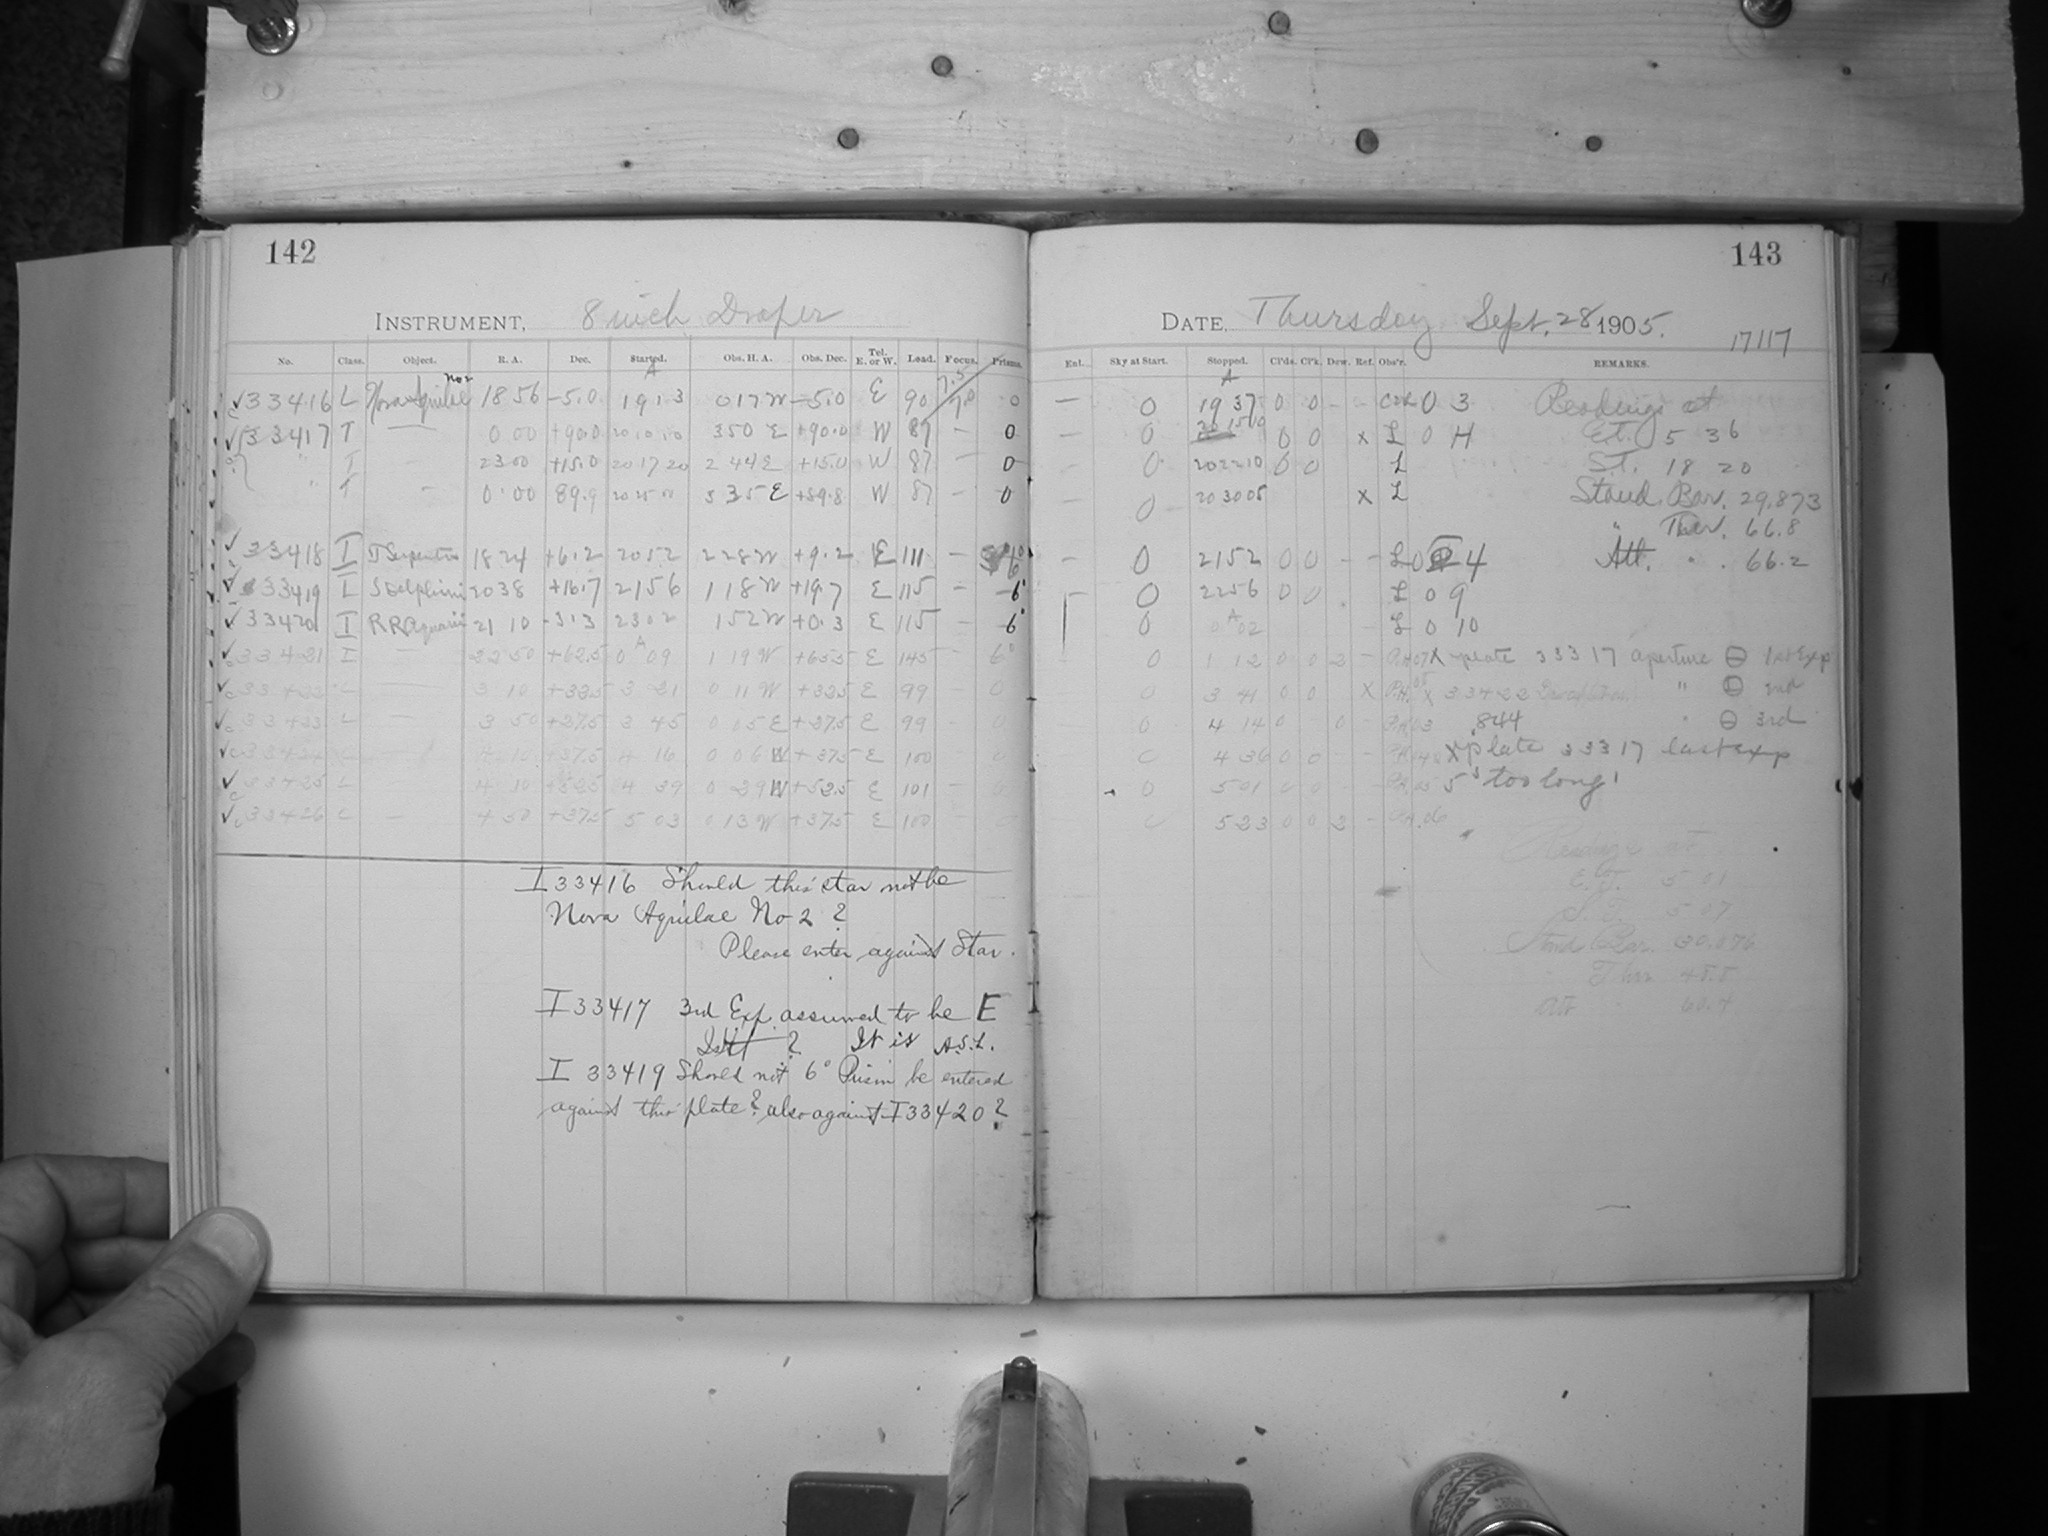 142
INSTRUMENT, 8 inch Draper
No. Class. Object. R. A. Dec. Started. Obs. H. A. Obs. Dec. Tel. E. or W. Load. Focus. Prisms.
33416 L Nova Aquilae No 2 18 56 -5.0 19 13 0 17 W -5.0 E 90 7.0 0
33417 T — 0 00 +90.0 20 10 10 3 50 E +90.0 W 87 — 0
" T — 23 00 +15.0 20 17 20 2 44 E +15.0 W 87 — 0
" T — 0 00 89.9 20 25 00 3 35 E +89.8 W 87 — 0
33418 I Serpentis 18 24 +6.2 20 52 2 28 W +9.2 E 111 — 6°
33419 I S Delphini 20 38 +16.7 21 56 1 18 W +19.7 E 115 — 6°
33420 I RR Aquarii 21 10 -3.3 23 02 1 52 W +0.3 E 115 — 6°
33421 I — 22 50 +62.5 0 09 1 19 W +65.5 E 145 — 6°
33422 L — 3 10 +32.5 3 21 0 11 W +32.5 E 99 — 0
33423 L — 3 50 +37.5 3 45 0 05 E +37.5 E 99 — 0
33424 C — 4 10 +37.5 4 16 0 06 W +37.5 E 100 0
33425 L — 4 10 +52.5 4 39 0 29 W +52.5 E 101 — 0
33426 C — 4 50 +37.5 5 03 0 13 W +37.5 E 100 — 0
I 33416 Should this star not be
Nova Aquilae No 2 ?
Please enter against Star.
I 33417 3rd Exp. assumed to be E
Is it ? It is A.S.L.
I 33419 Should not 6° Prism be entered
against this plate? also against I 33420?
143
DATE, Thursday Sept. 28 1905.
17117
Enl. Sky at Start. Stopped. Cl'ds. Cl'k. Dew. Ref. Obs'r. REMARKS.
— 0 19 37 0 0 - - 0 3 Readings at
— 0 20 15 10 0 0 x L 0 H E.T. 5 36
— 0 20 22 10 0 0 L S.T. 18 20
— 0 20 30 05 x L Stand. Bar. 29.873
" Ther. 66.8
— 0 21 52 0 0 - - L 0 4 Att. " 66.2
0 22 56 0 0 L 0 9
0 0 02 L 0 10
0 1 12 0 0 2 - x plate 33317 aperture 1st Exp
0 3 41 0 0 x P.H. x 33422 " 2nd
0 4 14 0 0 - P.H. 03 .844 " 3rd
0 4 36 0 0 - - P.H. x plate 33317 last exp
0 5 01 0 0 - P.H. 5s too long!
0 5 23 0 0 2 - P.H. 06
Readings at
E.T. 5 01
S.T. 5 07
Stand Bar. 30.076
Ther. 48.8
Att